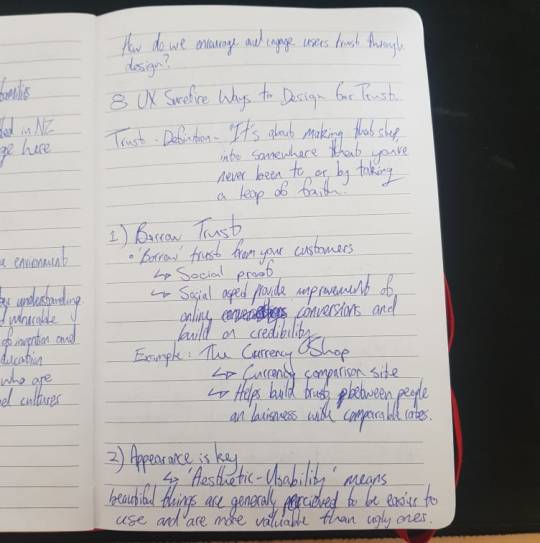 families
led in NZ
ge here
e environment
understanding
vulnerable
of invention and
ducation
who are
el cultures
How do we encourage and engage users trust through
design?
8 UX Surefire Ways to Design for Trust
Trust - Definition - "It's about making that step
into somewhere that you've
never been to or by taking
a leap of faith.
1) Borrow Trust
• 'Borrow' trust from your customers
↳ Social proof
↳ Social aspect provide improvement of
online conversions and
build on credibility
Example: The Currency Shop
↳ Currency comparison site
↳ Helps build trust between people
an buisness with comparable rates.
2) Appearance is key
↳ 'Aesthetic-Usability' means
beautiful things are generally percieved to be easier to
use and are more valuable than ugly ones.